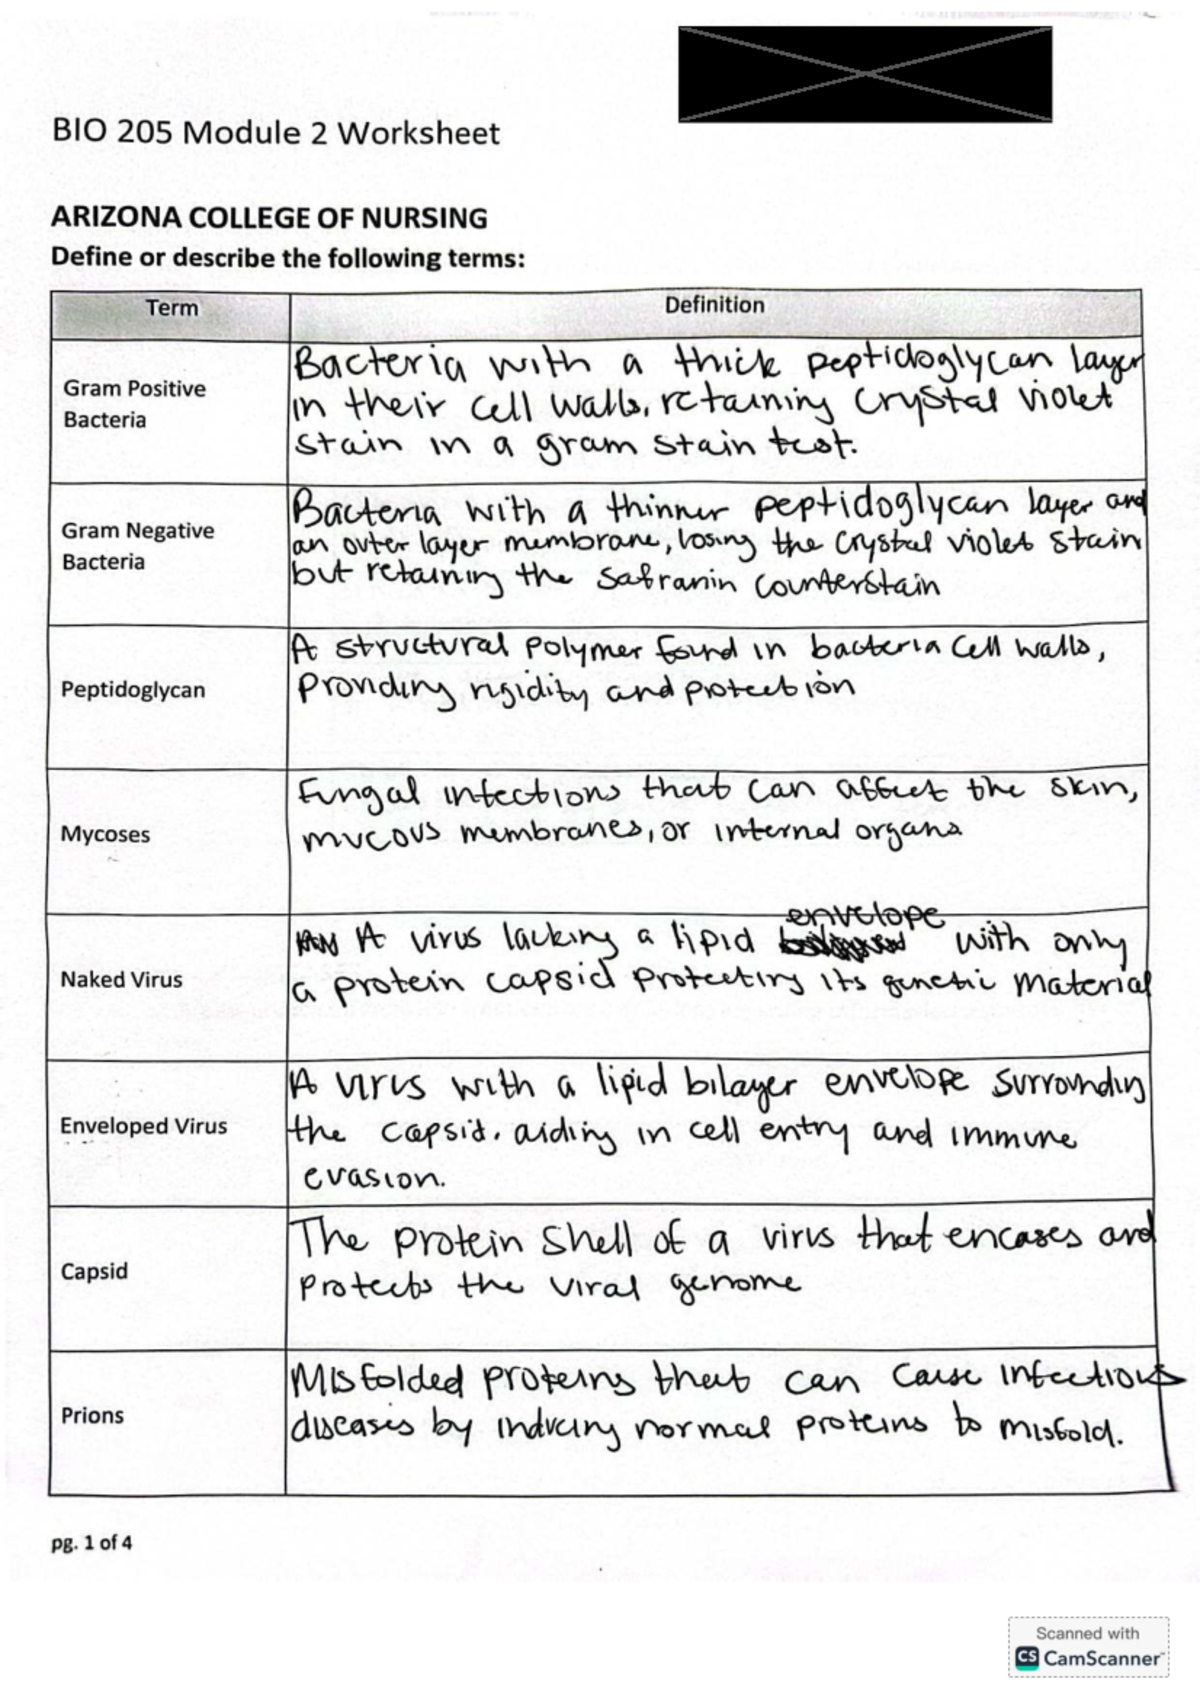 BIO 205 Module 2 Worksheet
ARIZONA COLLEGE OF NURSING
Define or describe the following terms:
Term
Definition
Gram Positive
Bacteria
Bacteria with a thick peptidoglycan layer
in their cell walls, retaining crystal violet
stain in a gram stain test.
Gram Negative
Bacteria
Bacteria with a thinner peptidoglycan layer and
an outer layer membrane, losing the crystal violet stain
but retaining the safranin counterstain
Peptidoglycan
A structural polymer found in bacteria cell walls,
providing rigidity and protection
Mycoses
Fungal infections that can affect the skin,
mucous membranes, or internal organs
Naked Virus
envelope
A virus lacking a lipid with only
a protein capsid protecting its genetic material
Enveloped Virus
A virus with a lipid bilayer envelope surrounding
the capsid, aiding in cell entry and immune
evasion.
Capsid
The protein shell of a virus that encases and
protects the viral genome
Prions
Misfolded proteins that can cause infectious
diseases by inducing normal proteins to misfold.
pg. 1 of 4
Scanned with
CS CamScanner